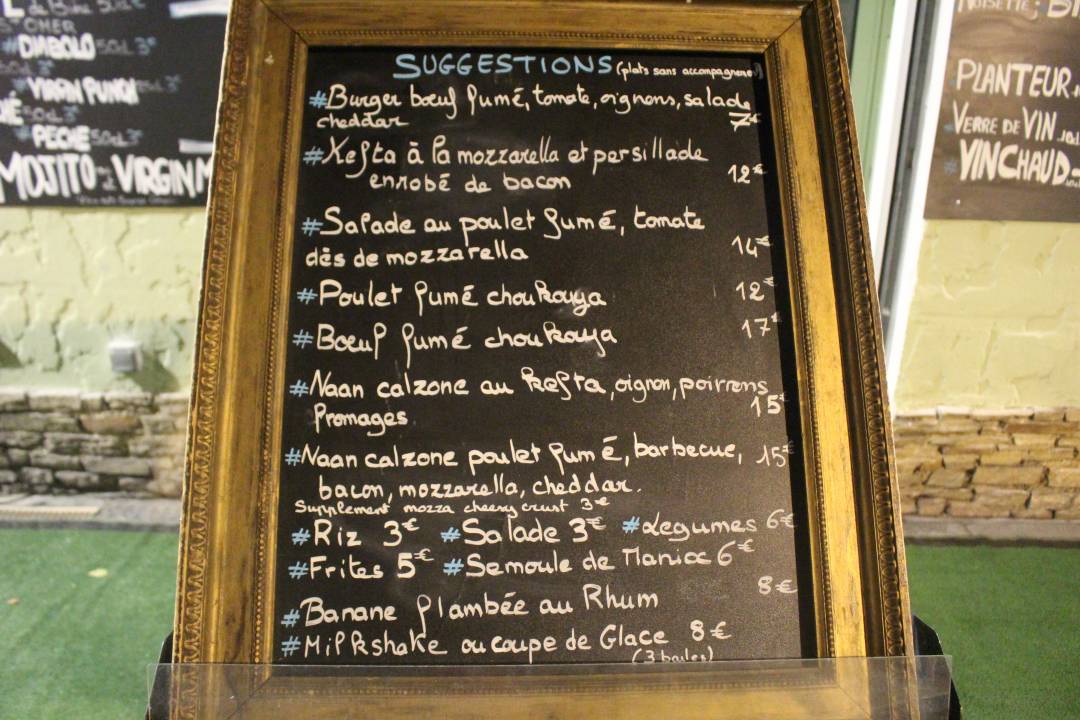 SUGGESTIONS (plats sans accompagnement)
#Burger bœuf fumé, tomate, oignons, salade
cheddar 7€
#Kefta à la mozzarella et persillade
enrobé de bacon 12€
#Salade au poulet fumé, tomate
dés de mozzarella 14€
#Poulet fumé choukouya 12€
#Bœuf fumé choukouya 17€
#Naan calzone au kefta, oignon, poivrons
fromages 15€
#Naan calzone poulet fumé, barbecue, 15€
bacon, mozzarella, cheddar.
Supplement mozza cheesy crust 3€
#Riz 3€ #Salade 3€ #Légumes 6€
#Frites 5€ #Semoule de Manioc 6€
#Banane flambée au Rhum 8€
#Milkshake ou coupe de Glace 8€
(3 boules)
DIABOLO 50cl 3€
VIRGIN PUNCH
PECHE 50cl 3€
MOJITO VIRGIN M
NOISETTE
PLANTEUR
VERRE DE VIN
VIN CHAUD